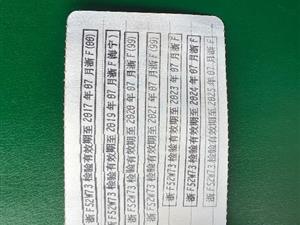 浙F52W73检验有效期至2017年07月浙F(00)
浙F52W73检验有效期至2019年07月浙F(海宁)
浙F52W73检验有效期至2020年07月浙F(99)
浙F52W73检验有效期至2021年07月浙F(99)
浙F52W73检验有效期至2023年07月浙F
浙F52W73检验有效期至2024年07月浙F
浙F52W73检验有效期至2025年07月浙F